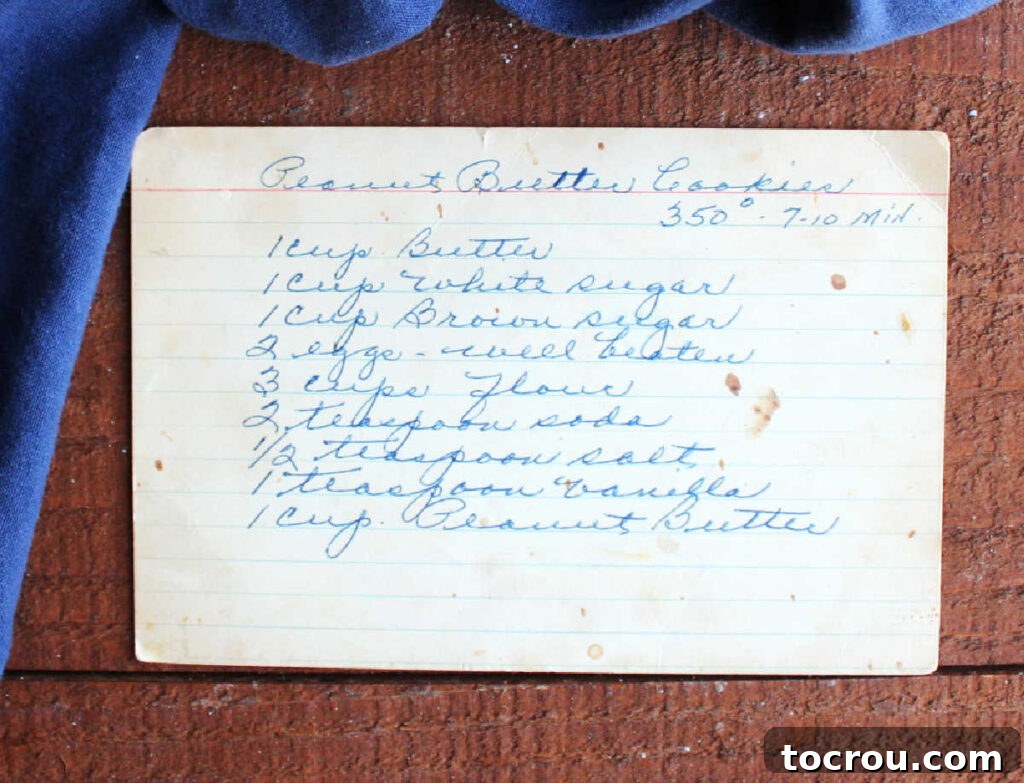 Peanut Butter Cookies
350° - 7-10 Min.
1 cup Butter
1 cup White sugar
1 cup Brown sugar
2 eggs - well beaten
3 cups flour
2 teaspoon soda
1/2 teaspoon salt
1 teaspoon vanilla
1 cup. Peanut Butter
tocrou.com